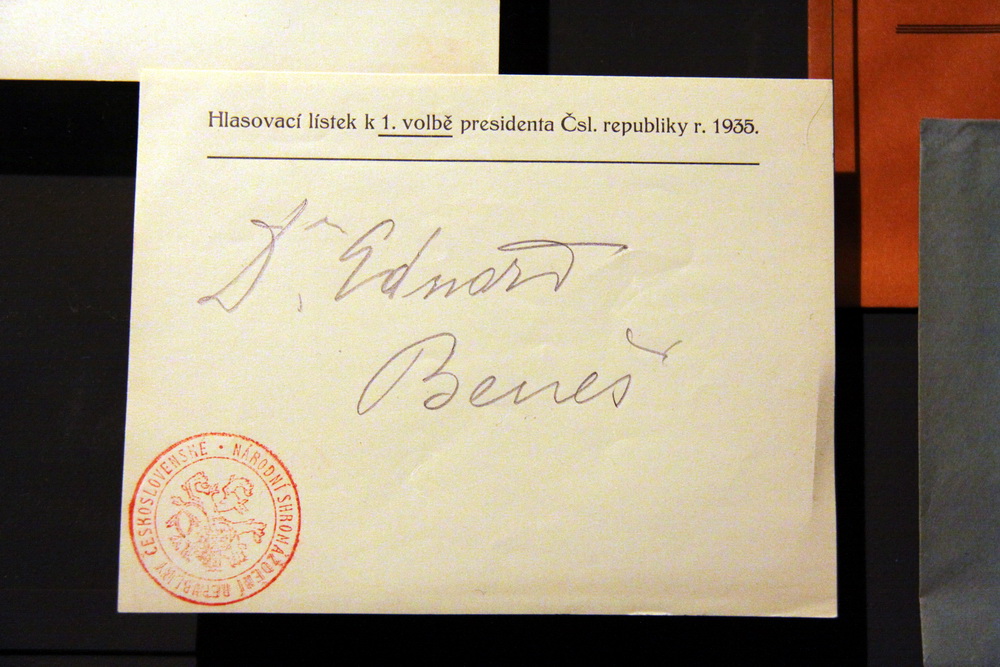 Hlasovací lístek k 1. volbě presidenta Čsl. republiky r. 1935.
Dr. Eduard
Beneš
NÁRODNÍ SHROMÁŽDĚNÍ REPUBLIKY ČESKOSLOVENSKÉ •